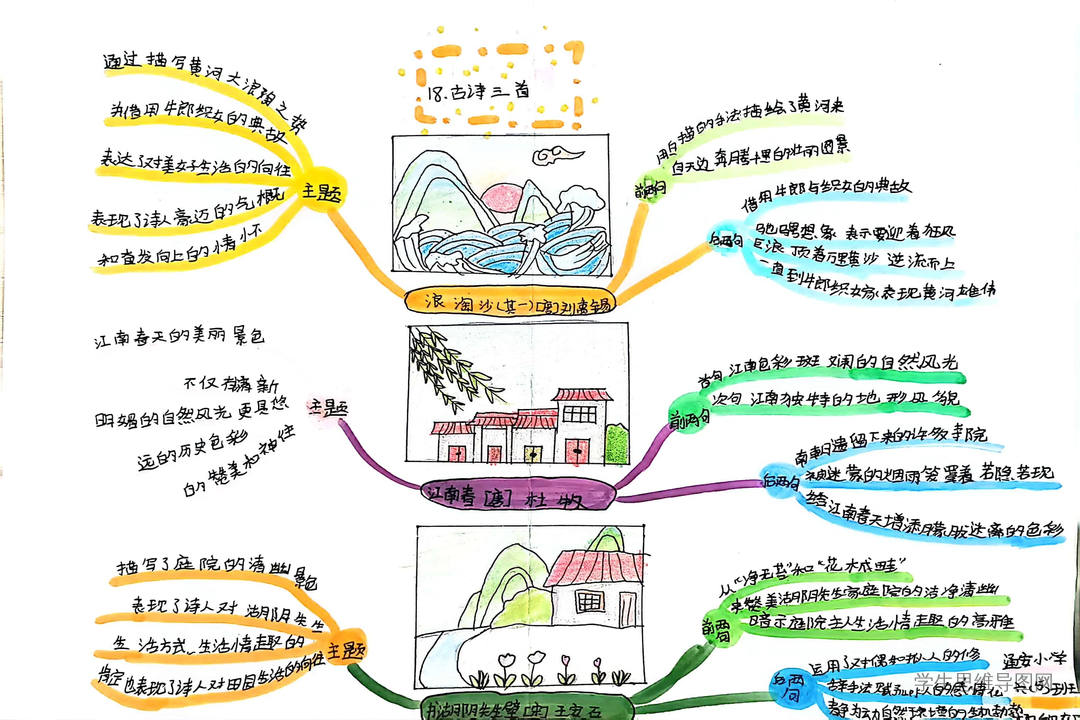 18.古诗三首
通过描写黄河大浪淘之势
并借用牛郎织女的典故
表达了对美好生活的向往
表现了诗人豪迈的气概
和奋发向上的情怀
主题
浪淘沙(其一)[唐]刘禹锡
前两句
用白描的手法描绘了黄河来
自天边奔腾千里的壮丽图景
后两句
借用牛郎与织女的典故
驰骋想象 表示要迎着狂风
巨浪 顶着万里黄沙 逆流而上
一直到牛郎织女家 表现黄河雄伟
江南春天的美丽景色
不仅有清新
明媚的自然风光 更具悠
远的历史色彩
的赞美和神往
主题
江南春[唐]杜牧
前两句
首句 江南色彩斑斓的自然风光
次句 江南独特的地形风貌
后两句
南朝遗留下来的许多寺院
被迷蒙的烟雨笼罩着 若隐若现
给江南春天增添朦胧迷离的色彩
描写了庭院的清幽景色
表现了诗人对 湖阴先生
生活方式、生活情趣的
肯定也表现了诗人对田园生活的向往
主题
书湖阴先生壁[宋]王安石
前两句
从“净无苔”和“花木成畦”
来赞美湖阴先生家庭院的洁净清幽
暗示庭院主人生活情趣的高雅
后两句
运用了对偶和拟人的修
辞手法
通安小学
学生思维导图网